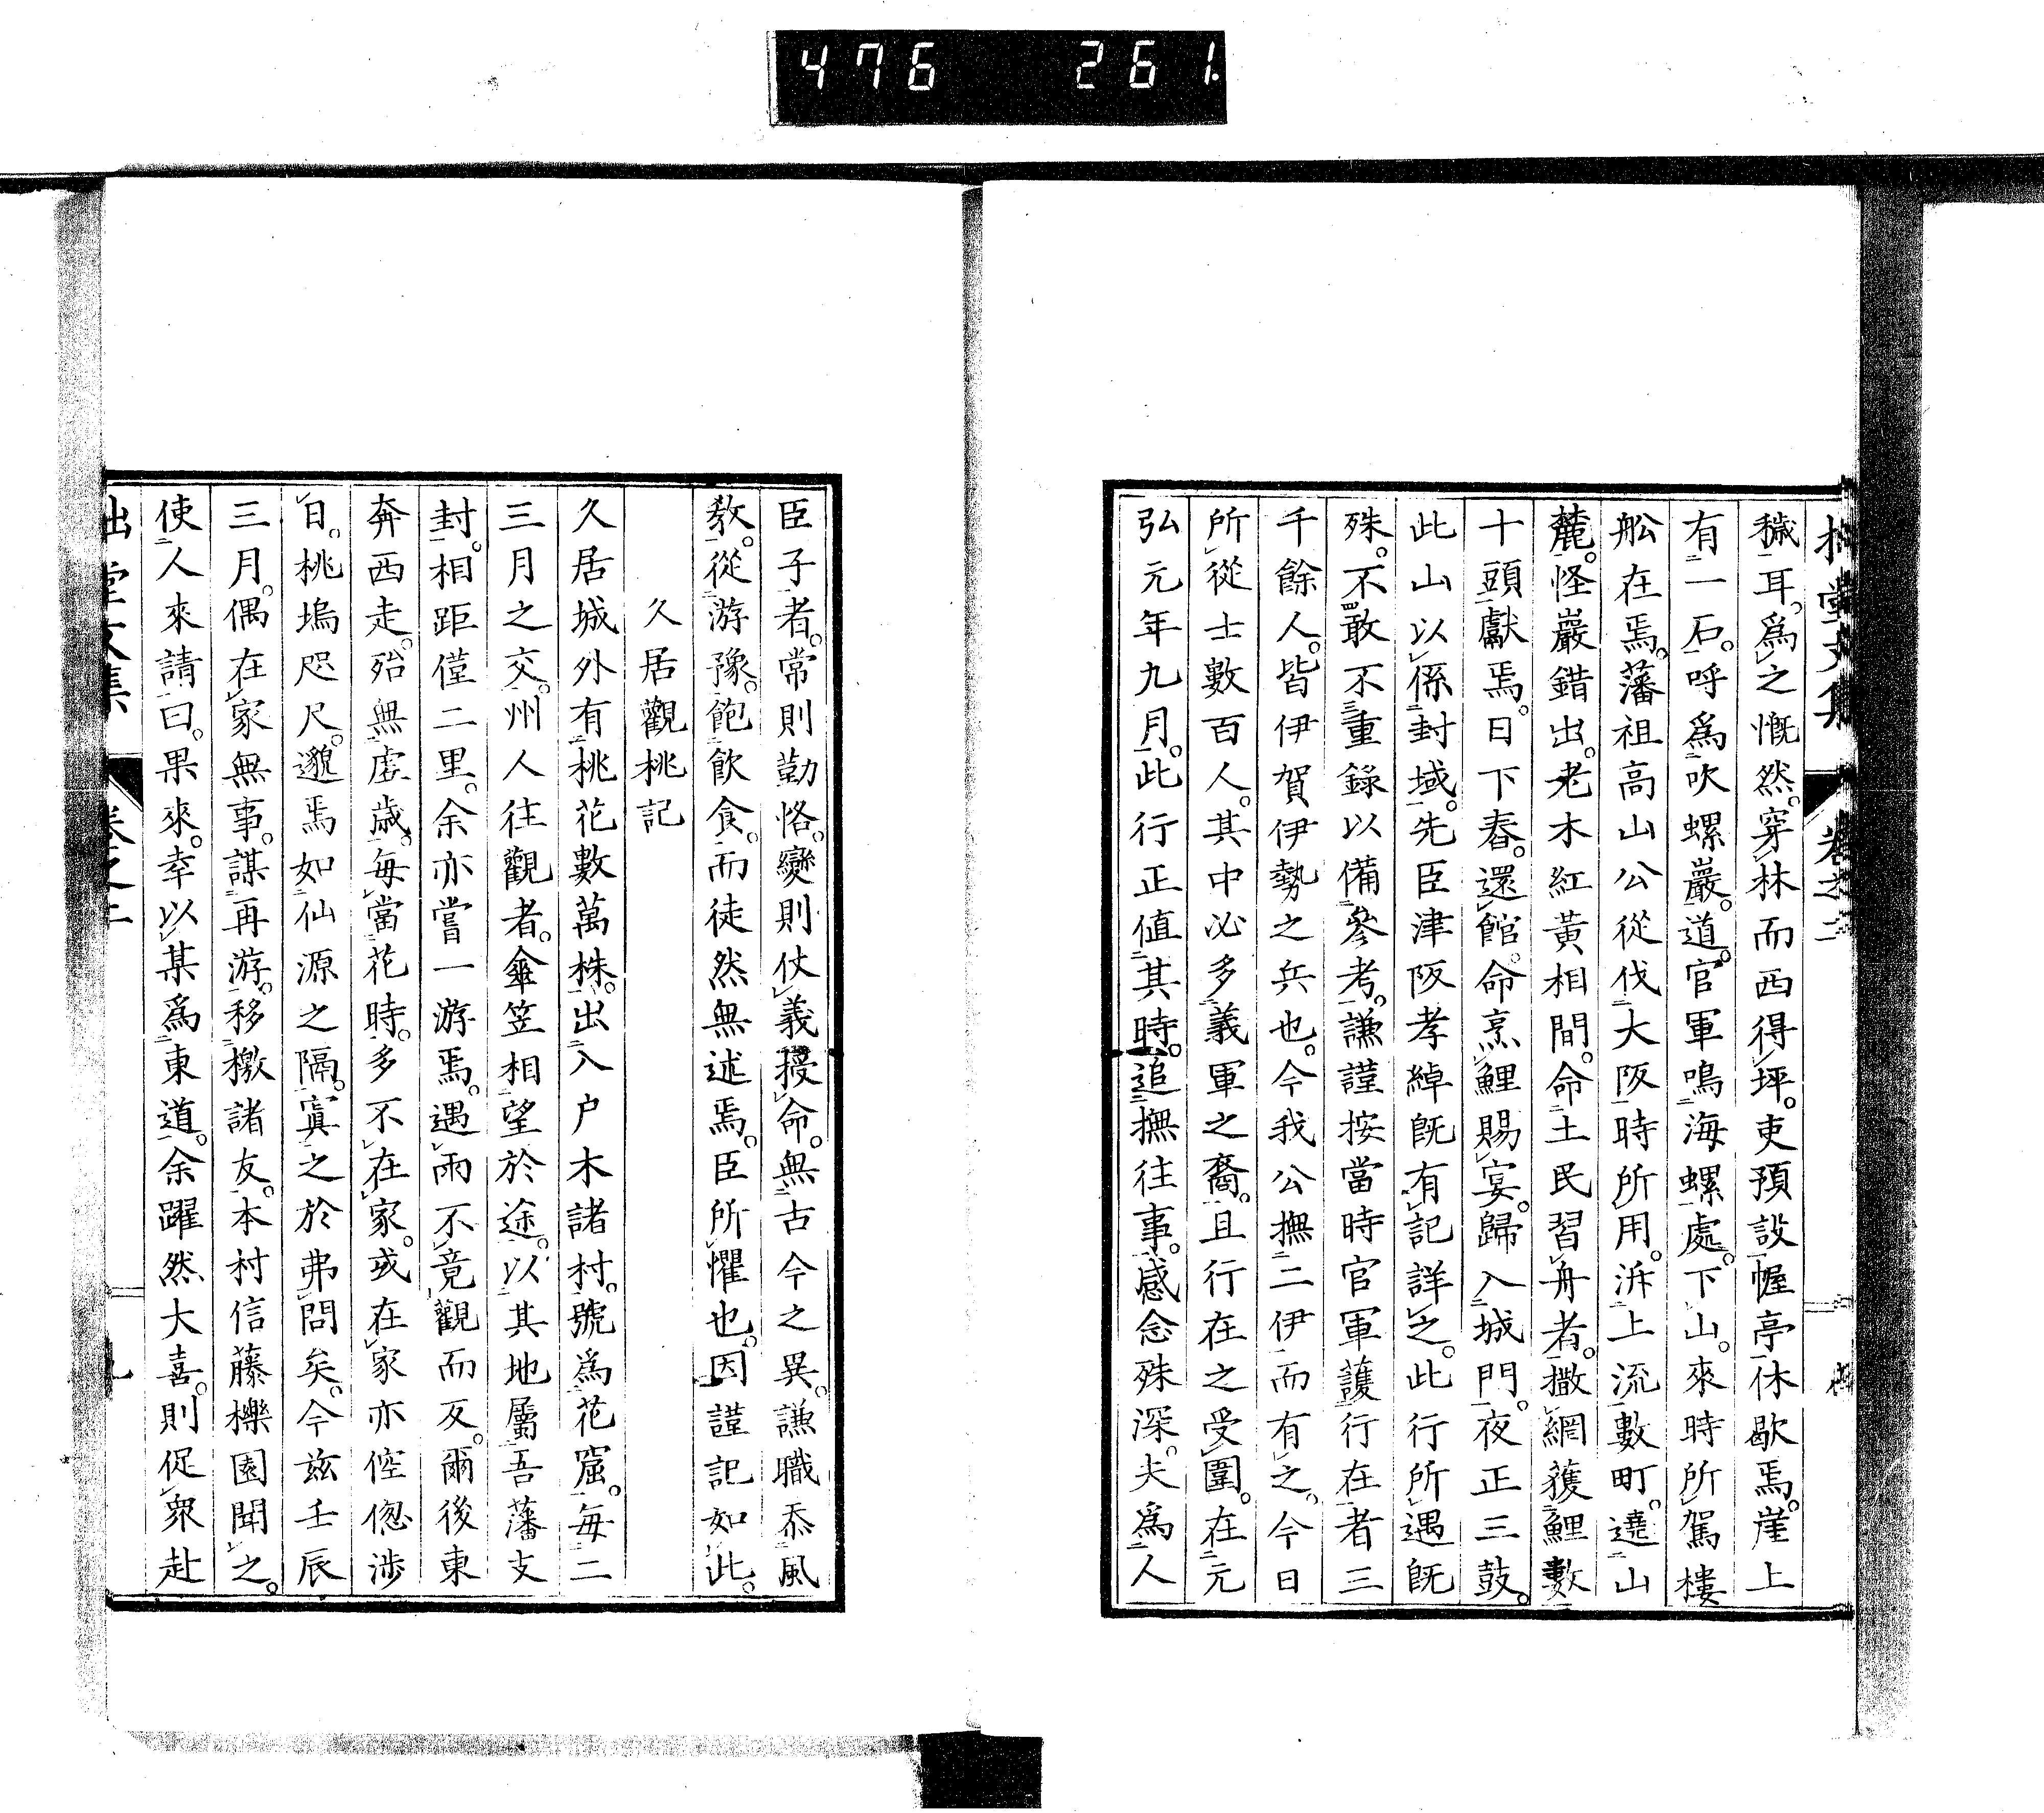 476 261
穢耳。爲之慨然。穿林而西得坪。吏預設幄亭休歇焉。崖上
有一石。呼爲吹螺巖。道。官軍鳴海螺處。下山。來時所駕樓
舩在焉。藩祖高山公從伐大阪時所用。泝上流數町。遶山
麓。怪巖錯出。老木紅黃相間。命土民習舟者。撒網獲鯉數
十頭獻焉。日下舂。還館。命烹鯉賜宴。歸入城門。夜正三鼓。
此山以係封域。先臣津阪孝綽旣有記詳之。此行所遇旣
殊。不敢不重錄以備參考。謙謹按當時官軍護行在者三
千餘人。皆伊賀伊勢之兵也。今我公撫二伊而有之。今日
所從士數百人。其中必多義軍之裔。且行在之受圍。在元
弘元年九月。此行正値其時。追撫往事。感念殊深。夫爲人
臣子者。常則勤恪。變則仗義授命。無古今之異。謙職忝風
敎。從游豫。飽飮食。而徒然無述焉。臣所懼也。因謹記如此。
久居觀桃記
久居城外有桃花數萬株。出入戶木諸村。號爲花窟。每二
三月之交。州人往觀者。傘笠相望於途。以其地屬吾藩支
封。相距僅二里。余亦嘗一游焉。遇雨不竟觀而反。爾後東
奔西走。殆無虛歲。每當花時。多不在家。或在家亦倥傯涉
日。桃塢咫尺。邈焉如仙源之隔。寘之於弗問矣。今玆壬辰
三月。偶在家無事。謀再游。移檄諸友。本村信藤櫟園聞之。
使人來請曰。果來。幸以某爲東道。余躍然大喜。則促衆赴
堂文集 卷之二